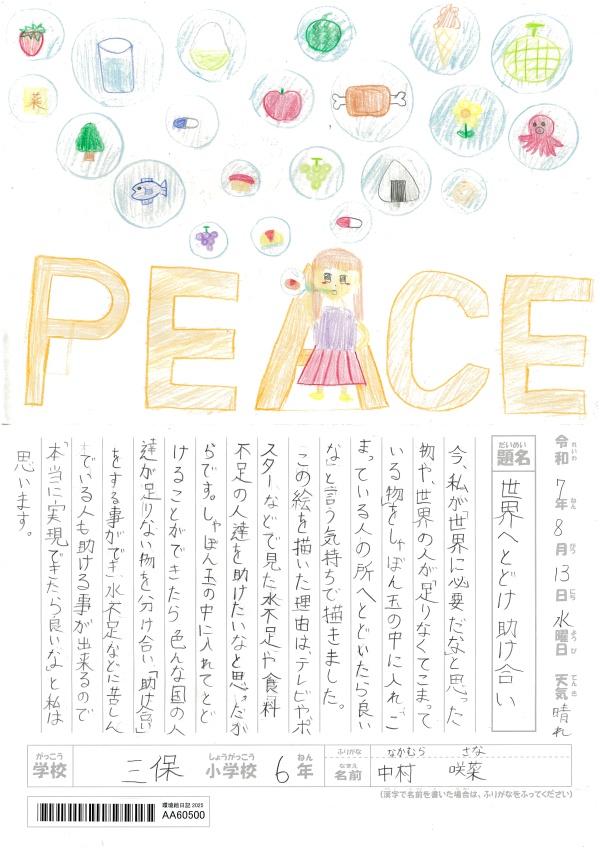 薬
PEACE
令和7年8月13日水曜日 天気 晴れ
れいわ ねん がつ にち ようび てんき
だいめい
題名 世界へとどけ 助け合い
今、私が「世界に必要だな」と思った
物や、世界の人が「足りなくてこまって
いる」物をしゃぼん玉の中に入れ、「こ
まっている人の所へとどいたら良い
な」と言う気持ちで描きました。
この絵を描いた理由は、テレビやポ
スターなどで見た水不足や食料
不足の人達を助けたいなと思ったか
らです。しゃぼん玉の中に入れてとど
けることができたら色んな国の人
達が足りない物を分け合い「助け合い」
をする事ができ、水不足などに苦しん
でいる人も助ける事が出来るので
「本当に「実現できたら良いな」と私は
思います。
がっこう しょうがっこう ねん
学校 三保 小学校 6年
ふりがな なかむら さな
なまえ
名前 中村 咲菜
(漢字で名前を書いた場合は、ふりがなをふってください)
環境絵日記 2025
AA60500